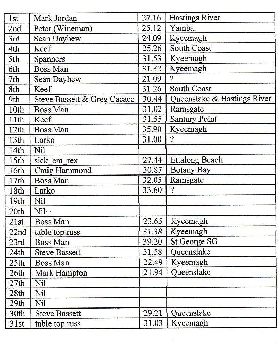 1st Mark Jordan 27.16 Hastings River
2nd Peter (Wineman) 25.12 Yamba
3rd Sean Dayhew 24.09 Kyeemagh
4th Keef 25.26 South Coast
5th Spanners 31.53 Kyeemagh
6th Boss Man Kyeemagh
7th Sean Dayhew 21.09 ?
8th Keef 31.26 South Coast
9th Steve Bussett & Greg 30.44 Queenslake & Hastings River
10th Boss Man 31.02 Ramsgate
11th Keef 31.55 Santury Point
12th Boss Man 35.90 Kyeemagh
13th Lurko 31.00 ?
14th Nil
15th sick_em_rex 27.44 Ettalong Beach
16th Craig Hammond 30.87 Botany Bay
17th Boss Man 32.05 Ramsgate
18th Lurko 33.60 ?
19th Nil
20th Nil
21st Boss Man 23.65 Kyeemagh
22nd table top russ Kyeemagh
23rd Boss Man 39.20 St George SG
24th Steve Bussett 31.58 Queenslake
25th Boss Man 22.49 Kyeemagh
26th Mark Hampton 21.94 Queenslake
27th Nil
28th Nil
29th Nil
30th Steve Bussett 29.21 Queenslake
31st table top russ 31.03 Kyeemagh